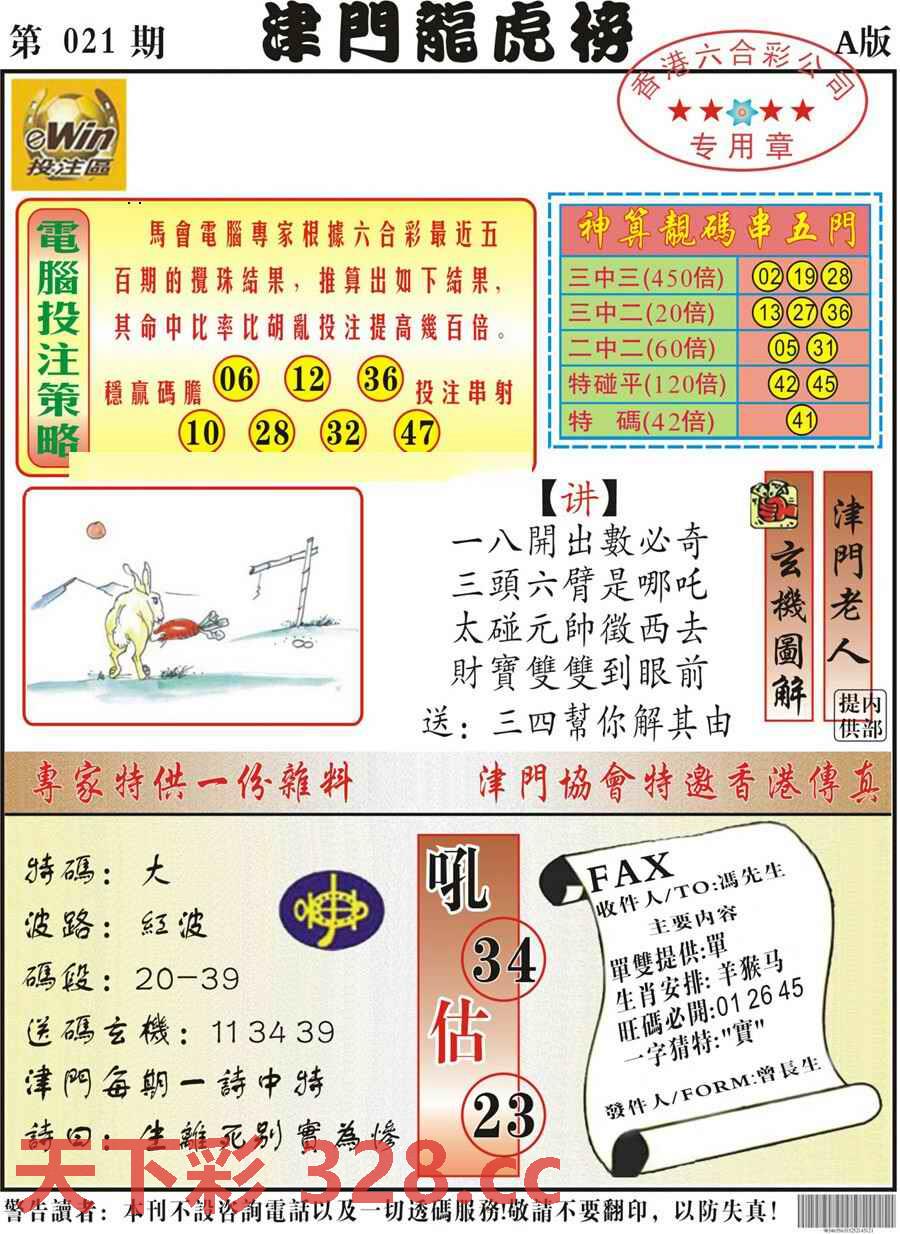 第 021 期
津門龍虎榜
A版
香港六合彩公司
专用章
eWin
投注區
電腦投注策略
馬會電腦專家根據六合彩最近五
百期的攪珠結果，推算出如下結果，
其命中比率比胡亂投注提高幾百倍。
穩贏碼膽 06 12 36 投注串射
10 28 32 47
神算靚碼串五門
三中三(450倍) 02 19 28
三中二(20倍) 13 27 36
二中二(60倍) 05 31
特碰平(120倍) 42 45
特 碼(42倍) 41
【讲】
一八開出數必奇
三頭六臂是哪吒
太碰元帥徵西去
財寶雙雙到眼前
送：三四幫你解其由
玄機圖解
津門老人
内部提供
專家特供一份雜料
津門協會特邀香港傳真
特碼：大
波路：紅波
碼段：20-39
送碼玄機：11 34 39
津門每期一詩中特
詩曰：生離死别實為慘
吼
34
估
23
FAX
收件人/TO:馮先生
主要内容
單雙提供:單
生肖安排: 羊猴马
旺碼必開:01 26 45
一字猜特:"實"
發件人/FORM:曾長生
天下彩 328.cc
警告讀者：本刊不設咨詢電話以及一切透碼服務!敬請不要翻印，以防失真!